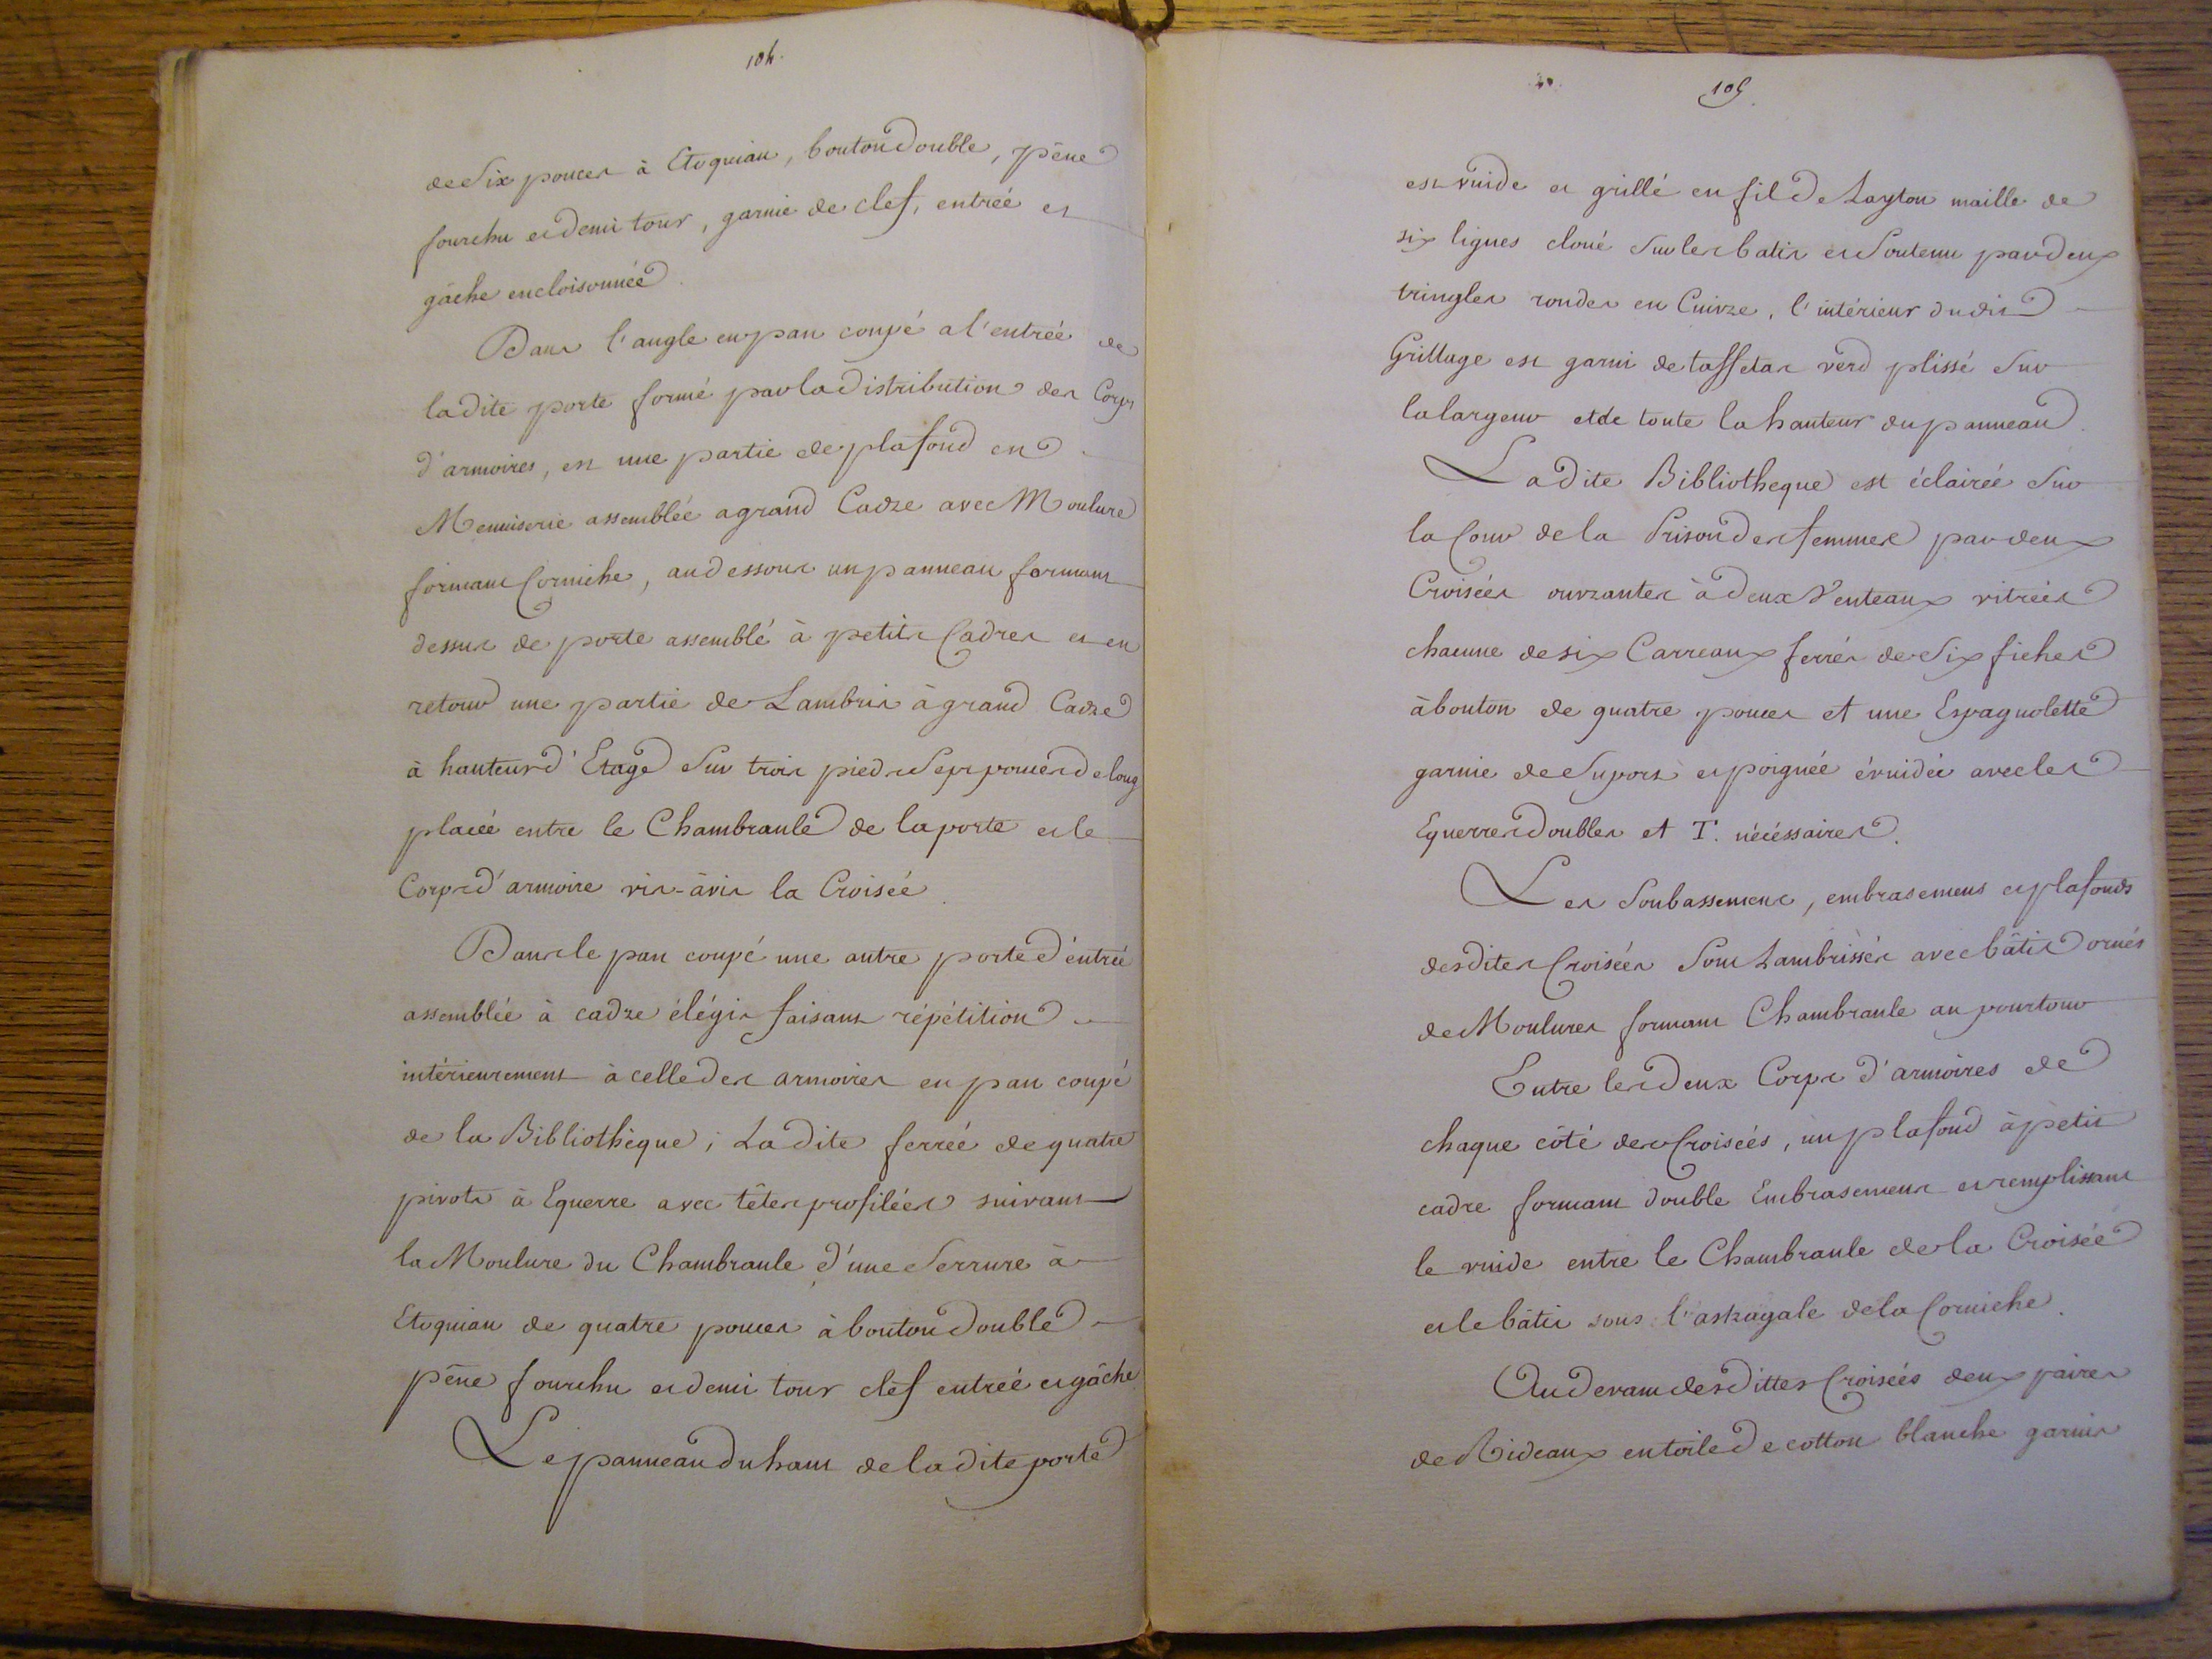 104.
de Six pouces à Etoquiau, bouton double, pêne
fourchu et demi tour, garnie de clef, entréé et
gâche encloisonnéé.
Dans l'angle en pan coupé a l'entréé de
ladite porte formé par la distribution des Corps
d'armoires, est une partie de plafond en
Menuiserie assemblée a grand Cadre avec Moulure
formant Corniche, au dessous un panneau formant
dessus de porte assemblé à petits Cadres et en
retour une partie de Lambris à grand Cadre
à hauteur d'Etage Sur trois pieds Sept pouces de long
placéé entre le Chambranle de la porte et le
Corps d'armoire vis-àvis la Croiséé.
Dans le pan coupé une autre porte d'éntréé
assemblée à cadre élégis faisant répétition
intérieurement à celle des armoires en pan coupé
de la Bibliothèque; Ladite ferréé de quatre
pivots à Equerre avec têtes profilées suivant
la Moulure du Chambranle d'une Serrure à
Etoquiau de quatre pouces à bouton double
pêne fourchu et demi tour clef entréé et gâche
Le panneau du haut de ladite porte
105.
est vuide et grillé en fil de Layton maille de
six lignes cloué Sur les batis et Soutenu par deux
tringles rondes en Cuivre, l'intérieur dudit
Grillage est garni de taffetas verd plissé Sur
la largeur et de toute la hauteur du panneau.
Ladite Bibliotheque est éclairéé Sur
la Cour de la Prison des femmes par deux
Croisées ouvrantes à deux Venteaux vitréés
chacune de six Carreaux ferrés de Six fiches
à bouton de quatre pouces et une Espagnolette
garnie de Suports et poignée évuidée avec les
Equerres doubles et T. nécéssaires.
Les Soubassements, embrasemens et plafonds
desdites Croisées Sont Lambrissés avec bâtis ornés
de Moulures formant Chambranle au pourtour
Entre les deux Corps d'armoires de
chaque côté des Croiséés, un plafond à petit
cadre formant double Embrasement et remplissant
le vuide entre le Chambranle de la Croiséé
et le bâtis sous l'astragale de la Corniche.
Au devant desdittes Croiséés deux paires
de Rideaux en toile de cotton blanche garnis